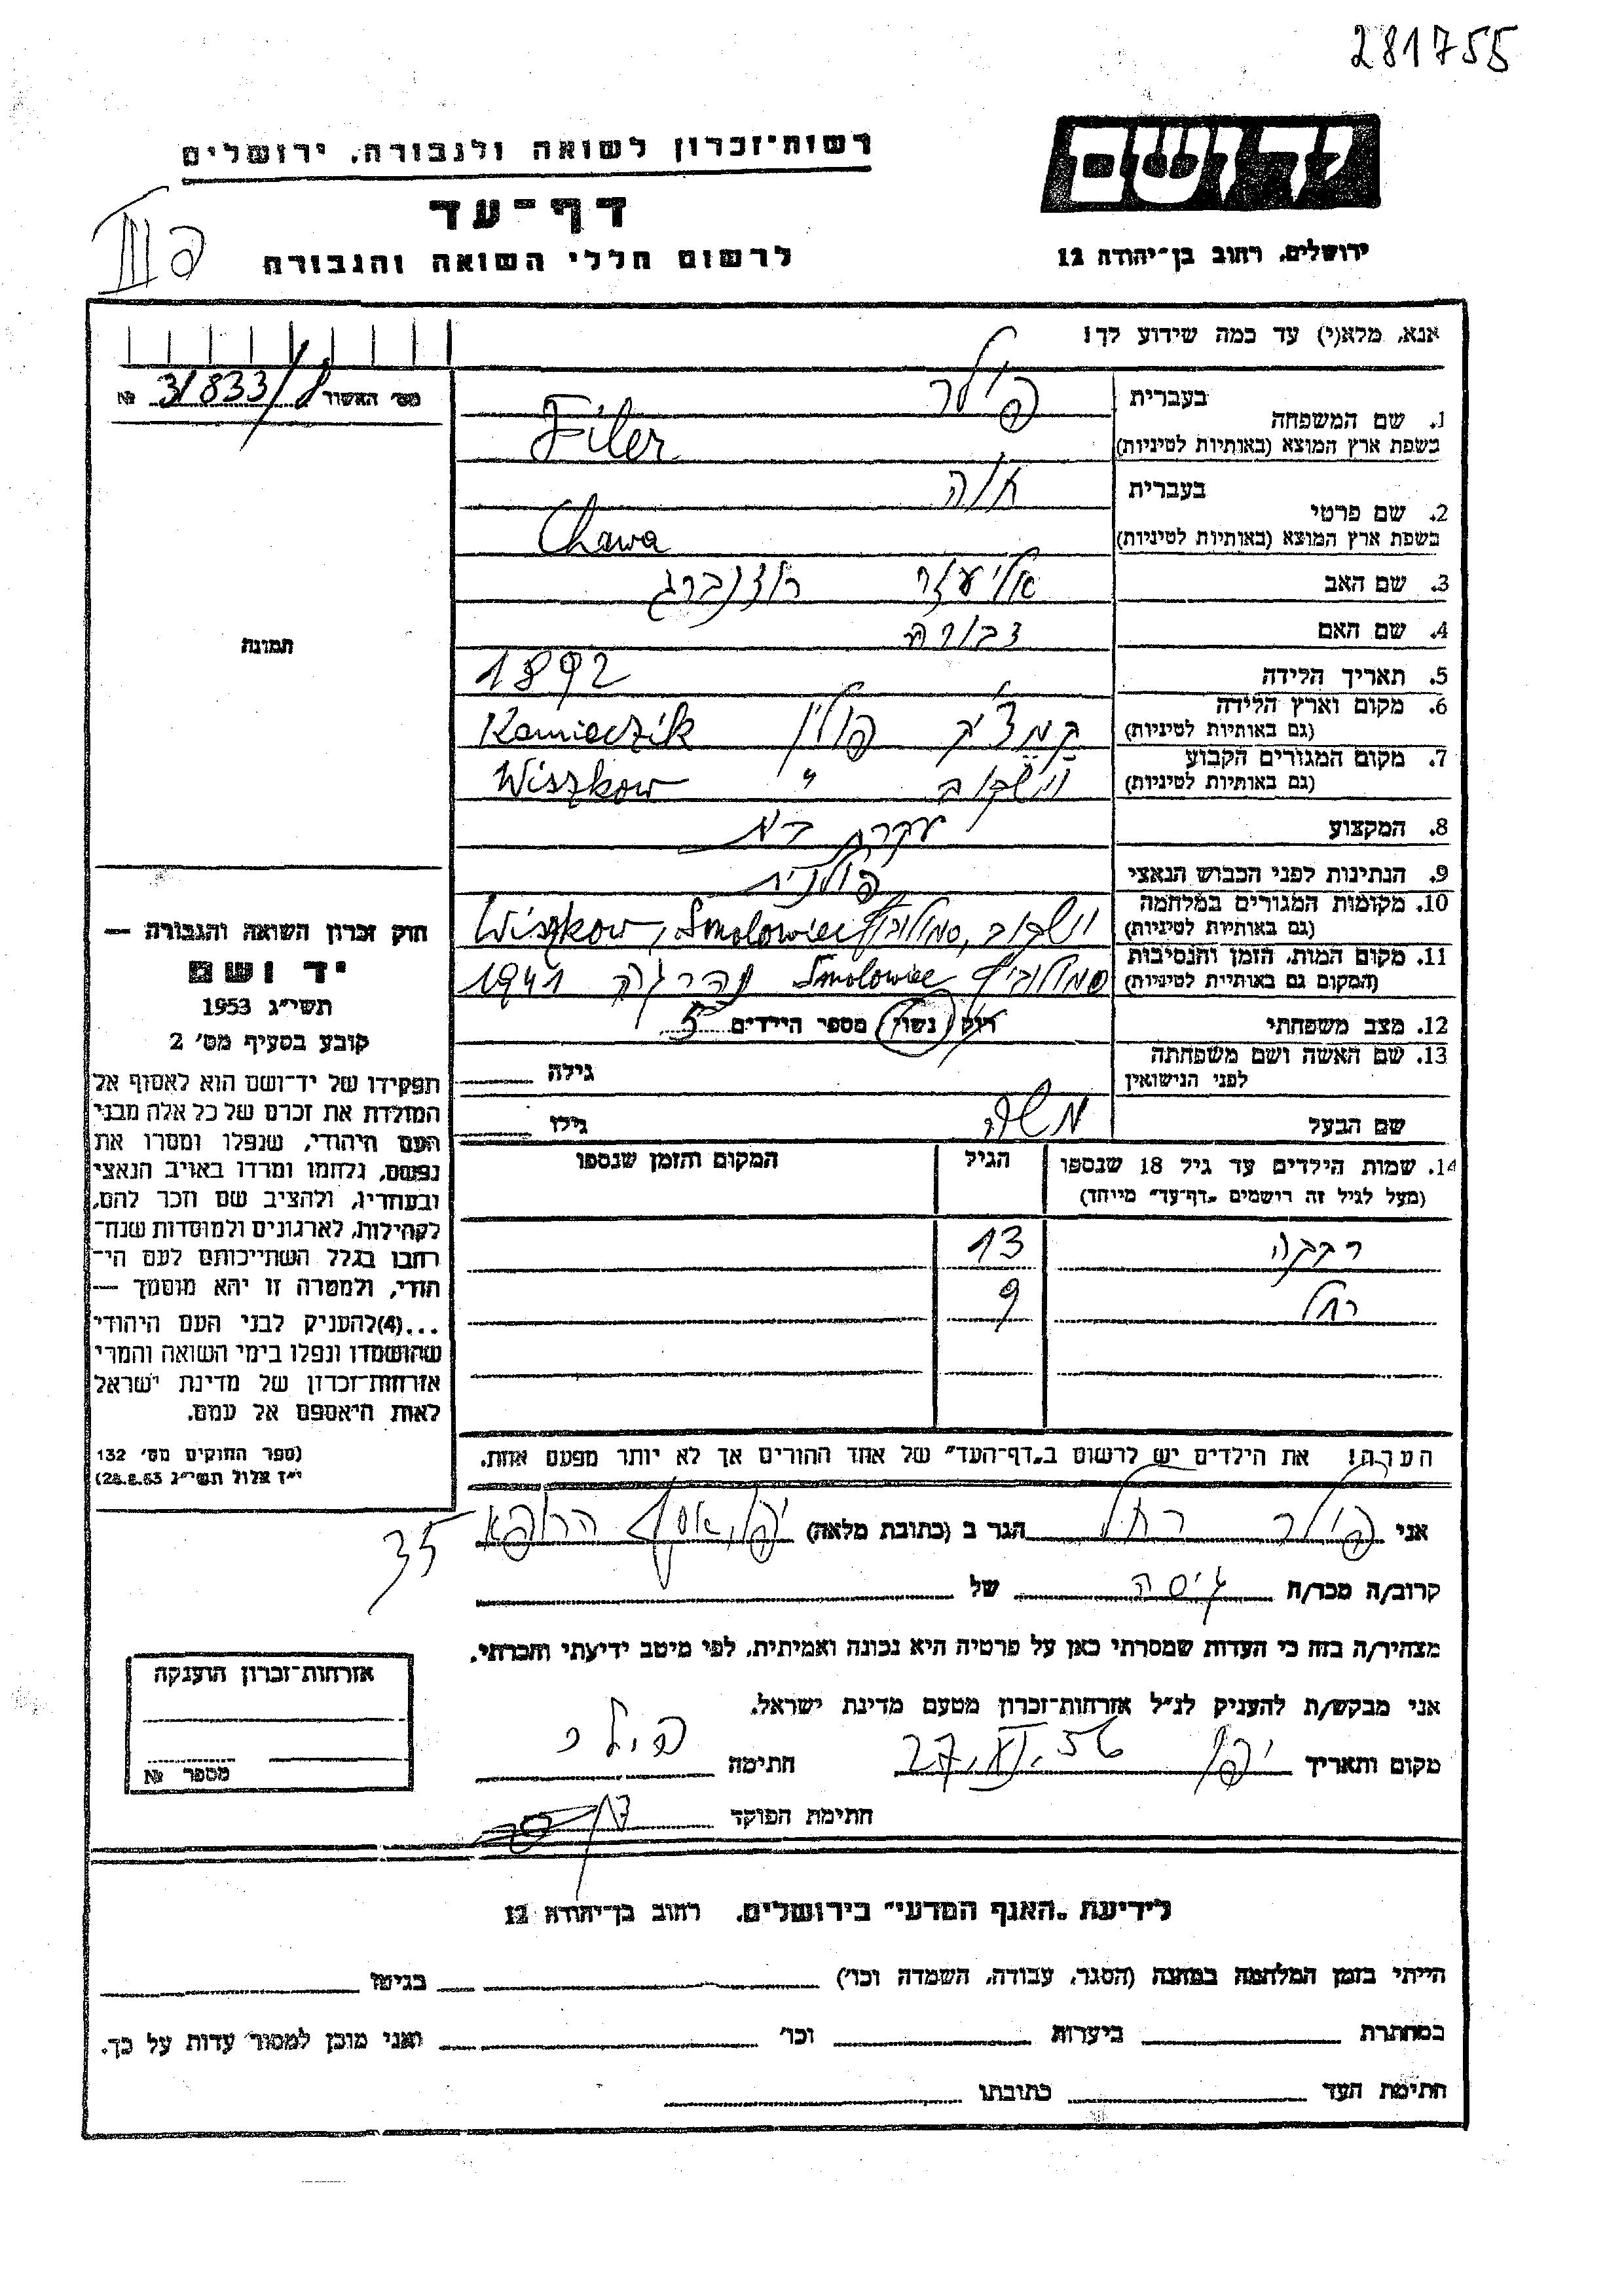 281755
יד ושם
רשות־זכרון לשואה ולגבורה, ירושלים
דף־עד
לרשום חללי השואה והגבורה
ירושלים, רחוב בן־יהודה 12
אנא, מלא(י) עד כמה שידוע לך!
מס' האשור № 31833/8
1. שם המשפחה
בעברית פילר
בשפת ארץ המוצא (באותיות לטיניות) Filer
2. שם פרטי
בעברית חוה
בשפת ארץ המוצא (באותיות לטיניות) Chawa
3. שם האב אליעזר רוזנברג
4. שם האם דבורה
5. תאריך הלידה 1892
6. מקום וארץ הלידה
(גם באותיות לטיניות) קמצ'יק פולין Kamieczik
7. מקום המגורים הקבוע
(גם באותיות לטיניות) וישקוב " Wiszkow
8. המקצוע עקרת בית
9. הנתינות לפני הכבוש הנאצי פולנית
10. מקומות המגורים במלחמה
(גם באותיות לטיניות) וישקוב, סמולוביץ Wiszkow, Smolowiec
11. מקום המות, הזמן והנסיבות
(המקום גם באותיות לטיניות) סמולוביץ Smolowiec נהרגה 1941
12. מצב משפחתי רוק/נשוי/ מספר הילדים 5
13. שם האשה ושם משפחתה
לפני הנישואין גילה
שם הבעל משה גילו
14. שמות הילדים עד גיל 18 שנספו
(מעל לגיל זה רושמים "דף־עד" מיוחד)
הגיל
המקום והזמן שנספו
רבקה 13
רחל 9
הערה! את הילדים יש לרשום ב"דף־העד" של אחד ההורים אך לא יותר מפעם אחת.
תמונה
חוק זכרון השואה והגבורה —
יד ושם
תשי״ג 1953
קובע בסעיף מס' 2
תפקידו של יד־ושם הוא לאסוף אל
המולדת את זכרם של כל אלה מבני
העם היהודי, שנפלו ומסרו את
נפשם, נלחמו ומרדו באויב הנאצי
ובעוזריו, ולהציב שם וזכר להם,
לקהילות, לארגונים ולמוסדות שנח־
רחבו בגלל השתייכותם לעם הי־
הודי, ולמטרה זו יהא מוסמך —
...(4)להעניק לבני העם היהודי
שהושמדו ונפלו בימי השואה והמרי
אזרחות־זכרון של מדינת ישראל
לאות היאספם אל עמם.
(ספר החוקים מס' 132
י״ז אלול תשי״ג 28.8.53)
אני פילר רחל הגר ב (כתובת מלאה) יפו, אסף הרופא 35
קרוב/ה מכר/ה גיסה של
מצהיר/ה בזה כי העדות שמסרתי כאן על פרטיה היא נכונה ואמיתית, לפי מיטב ידיעתי והכרתי.
אני מבקש/ת להעניק לנ״ל אזרחות־זכרון מטעם מדינת ישראל.
מקום ותאריך יפו 27.XI.56 חתימה פילר
חתימת הפוקד
אזרחות־זכרון הוענקה
מספר №
לידיעת "האגף המדעי" בירושלים, רחוב בן־יהודה 12
הייתי בזמן המלחמה במחנה (הסגר, עבודה, השמדה וכו') בגיטו
במחתרת ביערות וכו' ואני מוכן למסור עדות על כך.
חתימת העד כתובתו